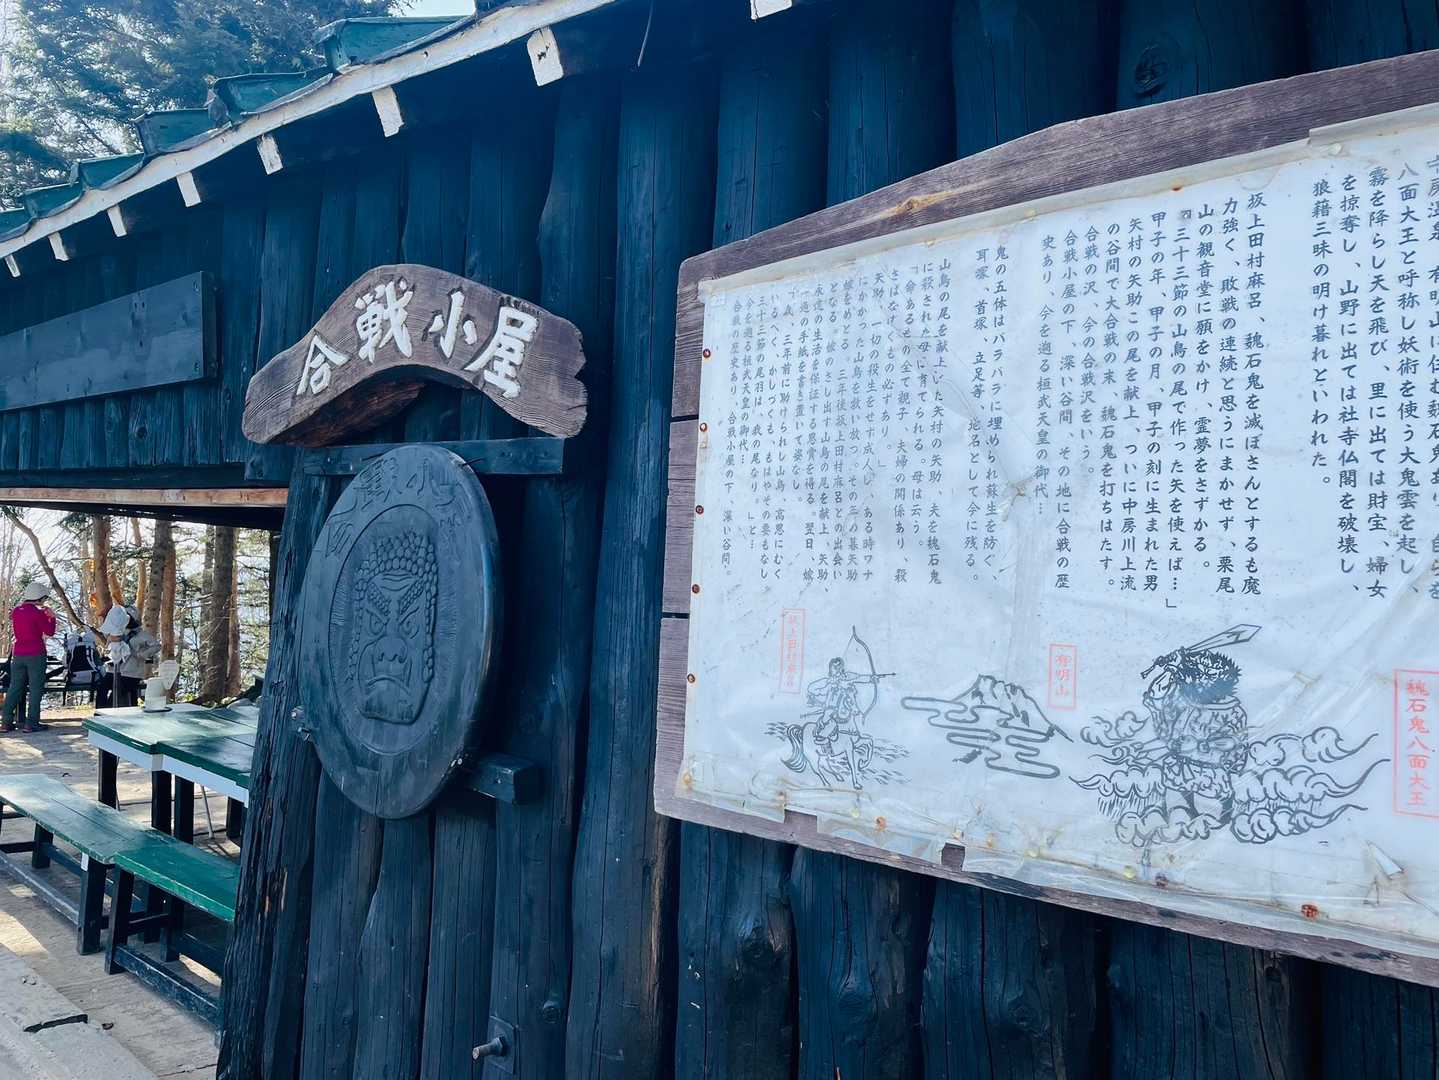 合戦小屋
八面大王と呼称し妖術を使う大鬼雲を起し、
霧を降らし天を飛び、里に出ては財宝、婦女
を掠奪し、山野に出ては社寺仏閣を破壊し、
狼藉三昧の明け暮れといわれた。
坂上田村麻呂、魏石鬼を滅ぼさんとするも魔
力強く、敗戦の連続と思うにまかせず、栗尾
山の観音堂に願をかけ、霊夢をさずかる。
『三十三節の山鳥の尾で作った矢を使えば…」
甲子の年、甲子の月、甲子の刻に生まれた男
矢村の矢助この尾を献上、ついに中房川上流
の谷間で大合戦の末、魏石鬼を打ちはたす。
合戦の沢、今の合戦沢をいう。
合戦小屋の下、深い谷間、その地に合戦の歴
史あり、今を遡る桓武天皇の御代…
鬼の五体はバラバラに埋められ蘇生を防ぐ、
耳塚、首塚、立足等、地名として今に残る。
山鳥の尾を献上した矢村の矢助、夫を魏石鬼
に殺された母に育てられる。母は云う。
「命あるもの全て親子、夫婦の関係あり、殺
さばなげくもの必ずあり。」
矢助、一切の殺生をせず成人し、ある時ワナ
にかかった山鳥を救い放つ。その年の暮矢助
嫁をめとる。三年後坂上田村麻呂との出会い
となる。嫁のさし出す山鳥の尾を献上、矢助、
永遠の生活を保証する恩賞を得る。翌日、嫁
一通の手紙を書き置いて姿なし。
三年前に助けられし山鳥、高恩にむく
いるべく、かしづくも、もはやその要もなし
三十三節の尾羽は、我の尾なり。」と…
今を遡る桓武天皇の御代…
合戦の歴史あり、合戦小屋の下、深い谷間。
坂上田村麻呂
有明山
魏石鬼八面大王